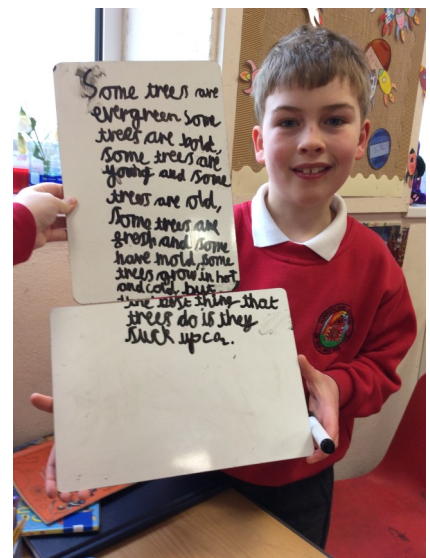 Some trees are
evergreen some
trees are bold,
some trees are
young and some
trees are old,
some trees are
fresh and some
have mold, some
trees grow in hot
and cold, but
the best thing that
trees do is they
suck up co₂.